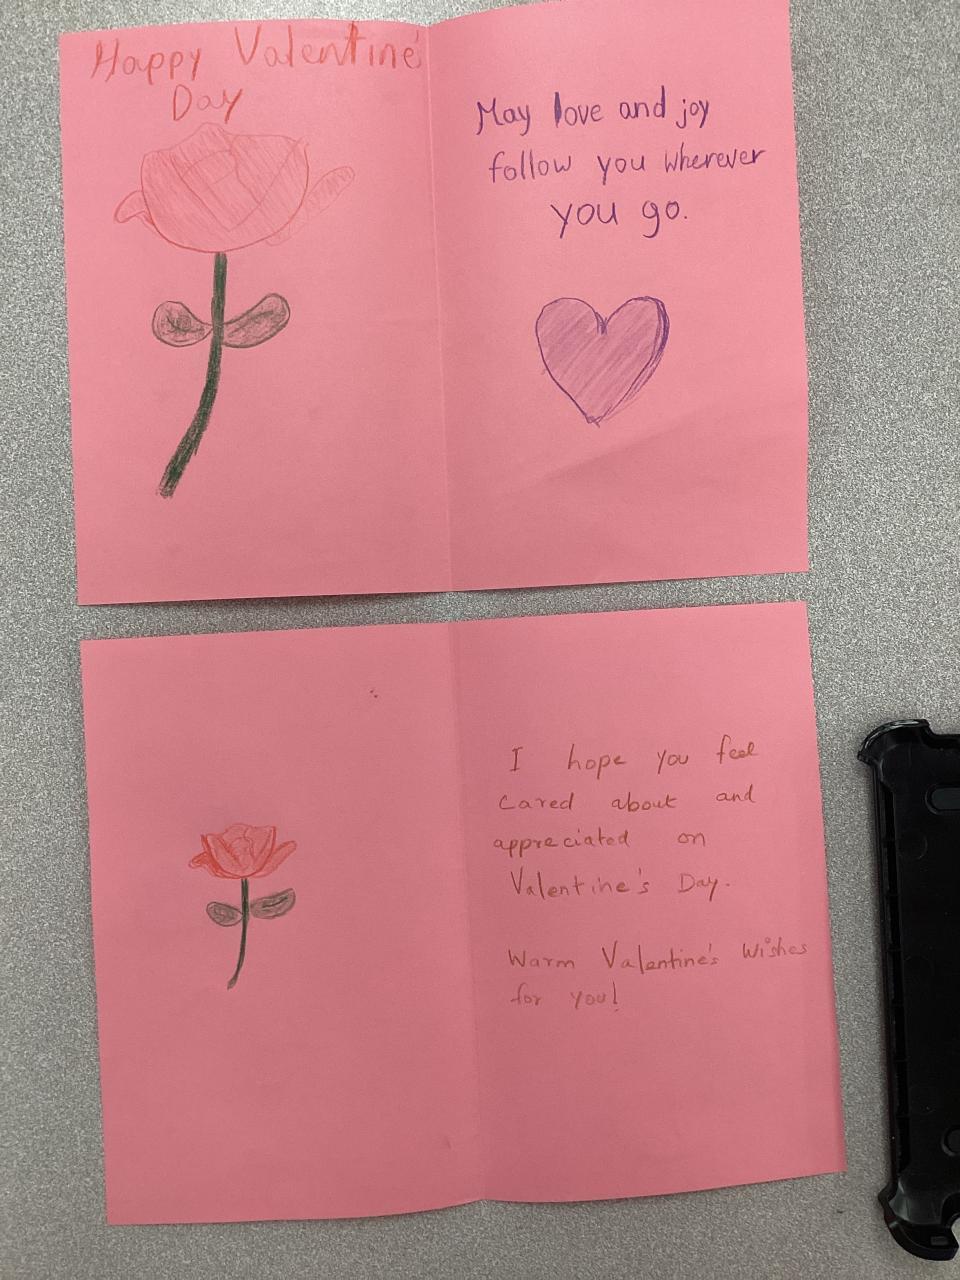 Happy Valentine's
Day
May love and joy
follow you wherever
you go.
I hope you feel
cared about and
appreciated on
Valentine's Day.
Warm Valentine's Wishes
for you!